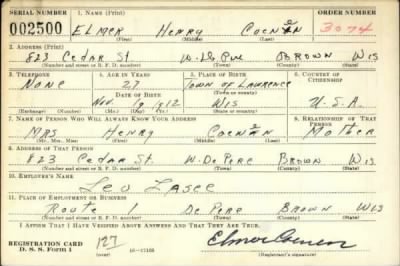 SERIAL NUMBER 1. NAME (Print) ORDER NUMBER
002500 ELMER HENRY COENEN 3074
(First) (Middle) (Last)
2. ADDRESS (Print)
823 Cedar St W. De Pere BROWN WIS
(Number and street or R. F. D. number) (Town) (County) (State)
3. TELEPHONE 4. AGE IN YEARS 5. PLACE OF BIRTH 6. COUNTRY OF CITIZENSHIP
None 27 Town of Lawrence
DATE OF BIRTH (Town or county)
Nov. 19 1912 Wis U.S.A.
(Exchange) (Number) (Mo.) (Day) (Yr.) (State or country)
7. NAME OF PERSON WHO WILL ALWAYS KNOW YOUR ADDRESS 8. RELATIONSHIP OF THAT PERSON
Mrs Henry Coenen Mother
(Mr., Mrs., Miss) (First) (Middle) (Last)
9. ADDRESS OF THAT PERSON
823 Cedar St. W. De Pere Brown Wis.
(Number and street or R. F. D. number) (Town) (County) (State)
10. EMPLOYER'S NAME
Leo Lasee
11. PLACE OF EMPLOYMENT OR BUSINESS
Route 1 De Pere Brown Wis
(Number and street or R. F. D. number) (Town) (County) (State)
I AFFIRM THAT I HAVE VERIFIED ABOVE ANSWERS AND THAT THEY ARE TRUE.
REGISTRATION CARD
D. S. S. Form 1 127 Elmer Coenen
(Registrant's signature)